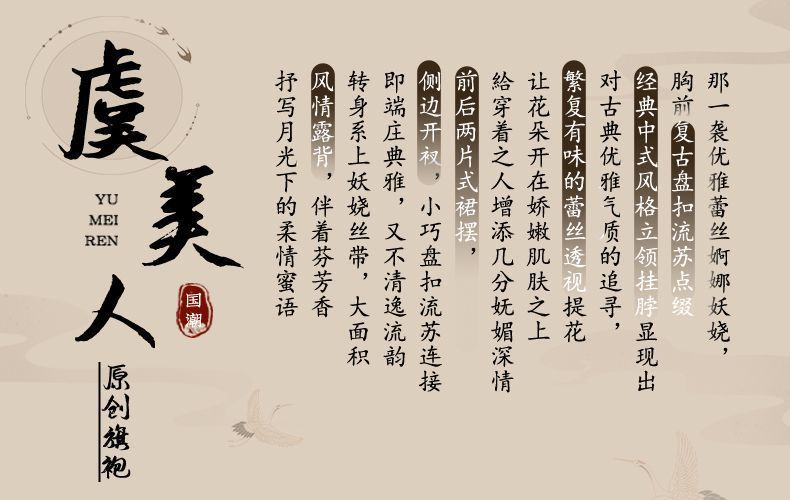 虞美人
YU
MEI
REN
国潮
原创旗袍
那一袭优雅蕾丝婀娜妖娆，
胸前复古盘扣流苏点缀
经典中式风格立领挂脖显现出
对古典优雅气质的追寻，
繁复有味的蕾丝透视提花
让花朵开在娇嫩肌肤之上
给穿着之人增添几分妩媚深情
前后两片式裙摆，
侧边开衩，小巧盘扣流苏连接
即端庄典雅，又不清逸流韵
转身系上妖娆丝带，大面积
风情露背，伴着芬芳香
抒写月光下的柔情蜜语